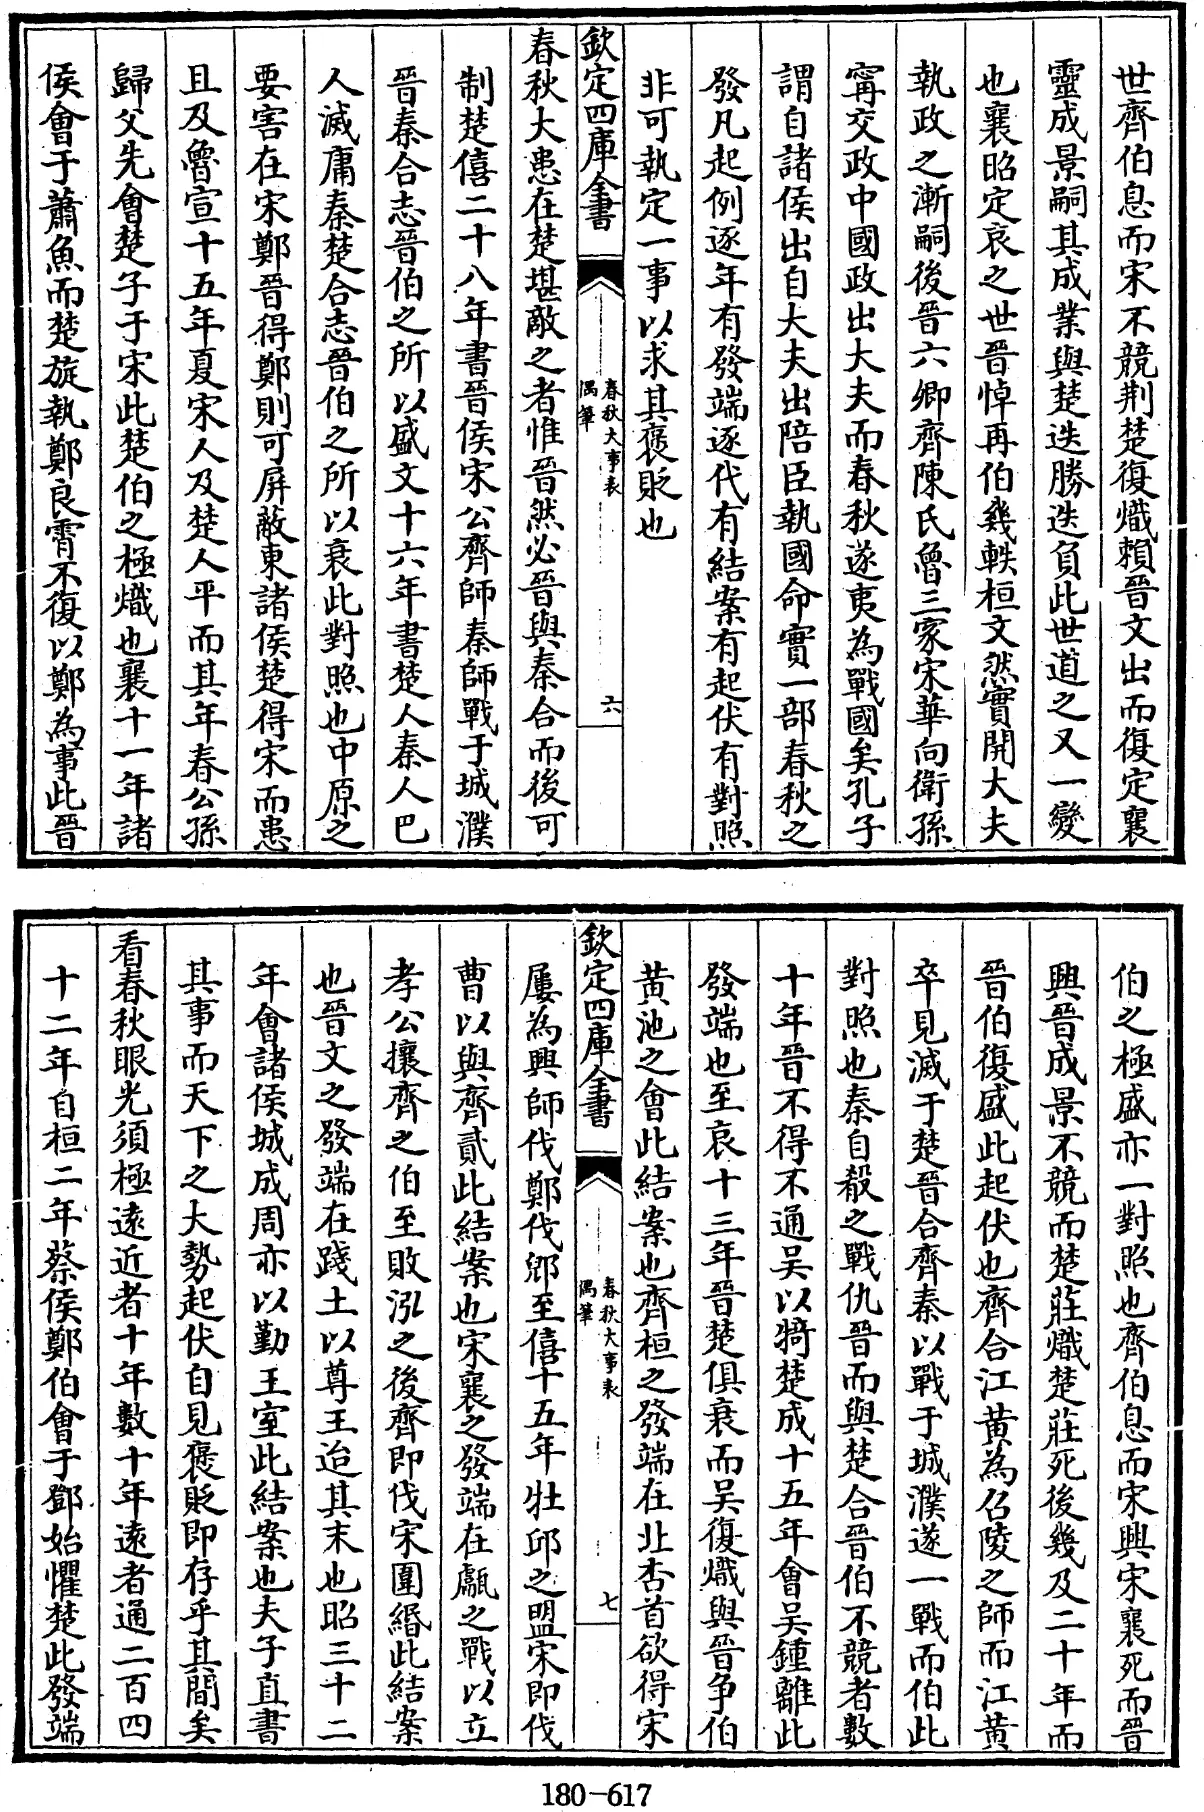 世齊伯息而宋不競荆楚復熾賴晉文出而復定襄
靈成景嗣其成業與楚迭勝迭負此世道之又一變
也襄昭定哀之世晉悼再伯幾軼桓文然實開大夫
執政之漸嗣後晉六卿齊陳氏魯三家宋華向衛孫
甯交政中國政出大夫而春秋遂夷為戰國矣孔子
謂自諸侯出自大夫出陪臣執國命實一部春秋之
發凡起例逐年有發端逐代有結案有起伏有對照
非可執定一事以求其襃貶也
欽定四庫全書
春秋大事表
偶筆
六
春秋大患在楚堪敵之者惟晉然必晉與秦合而後可
制楚僖二十八年書晉侯宋公齊師秦師戰于城濮
晉秦合志晉伯之所以盛文十六年書楚人秦人巴
人滅庸秦楚合志晉伯之所以衰此對照也中原之
要害在宋鄭晉得鄭則可屏蔽東諸侯楚得宋而患
且及魯宣十五年夏宋人及楚人平而其年春公孫
歸父先會楚子于宋此楚伯之極熾也襄十一年諸
侯會于蕭魚而楚旋執鄭良霄不復以鄭為事此晉
伯之極盛亦一對照也齊伯息而宋興宋襄死而晉
興晉成景不競而楚莊熾楚莊死後幾及二十年而
晉伯復盛此起伏也齊合江黄為召陵之師而江黄
卒見滅于楚晉合齊秦以戰于城濮遂一戰而伯此
對照也秦自殽之戰仇晉而與楚合晉伯不競者數
十年晉不得不通吴以犄楚成十五年會吴鍾離此
發端也至哀十三年晉楚俱衰而吴復熾與晉争伯
黄池之會此結案也齊桓之發端在北杏首欲得宋
欽定四庫全書
春秋大事表
偶筆
七
屢為興師伐鄭伐郳至僖十五年牡邱之盟宋即伐
曹以與齊貳此結案也宋襄之發端在甗之戰以立
孝公攘齊之伯至敗泓之後齊即伐宋圍緡此結案
也晉文之發端在踐土以尊王迨其末也昭三十二
年會諸侯城成周亦以勤王室此結案也夫子直書
其事而天下之大勢起伏自見襃貶即存乎其間矣
看春秋眼光須極遠近者十年數十年遠者通二百四
十二年自桓二年蔡侯鄭伯會于鄧始懼楚此發端
180-617